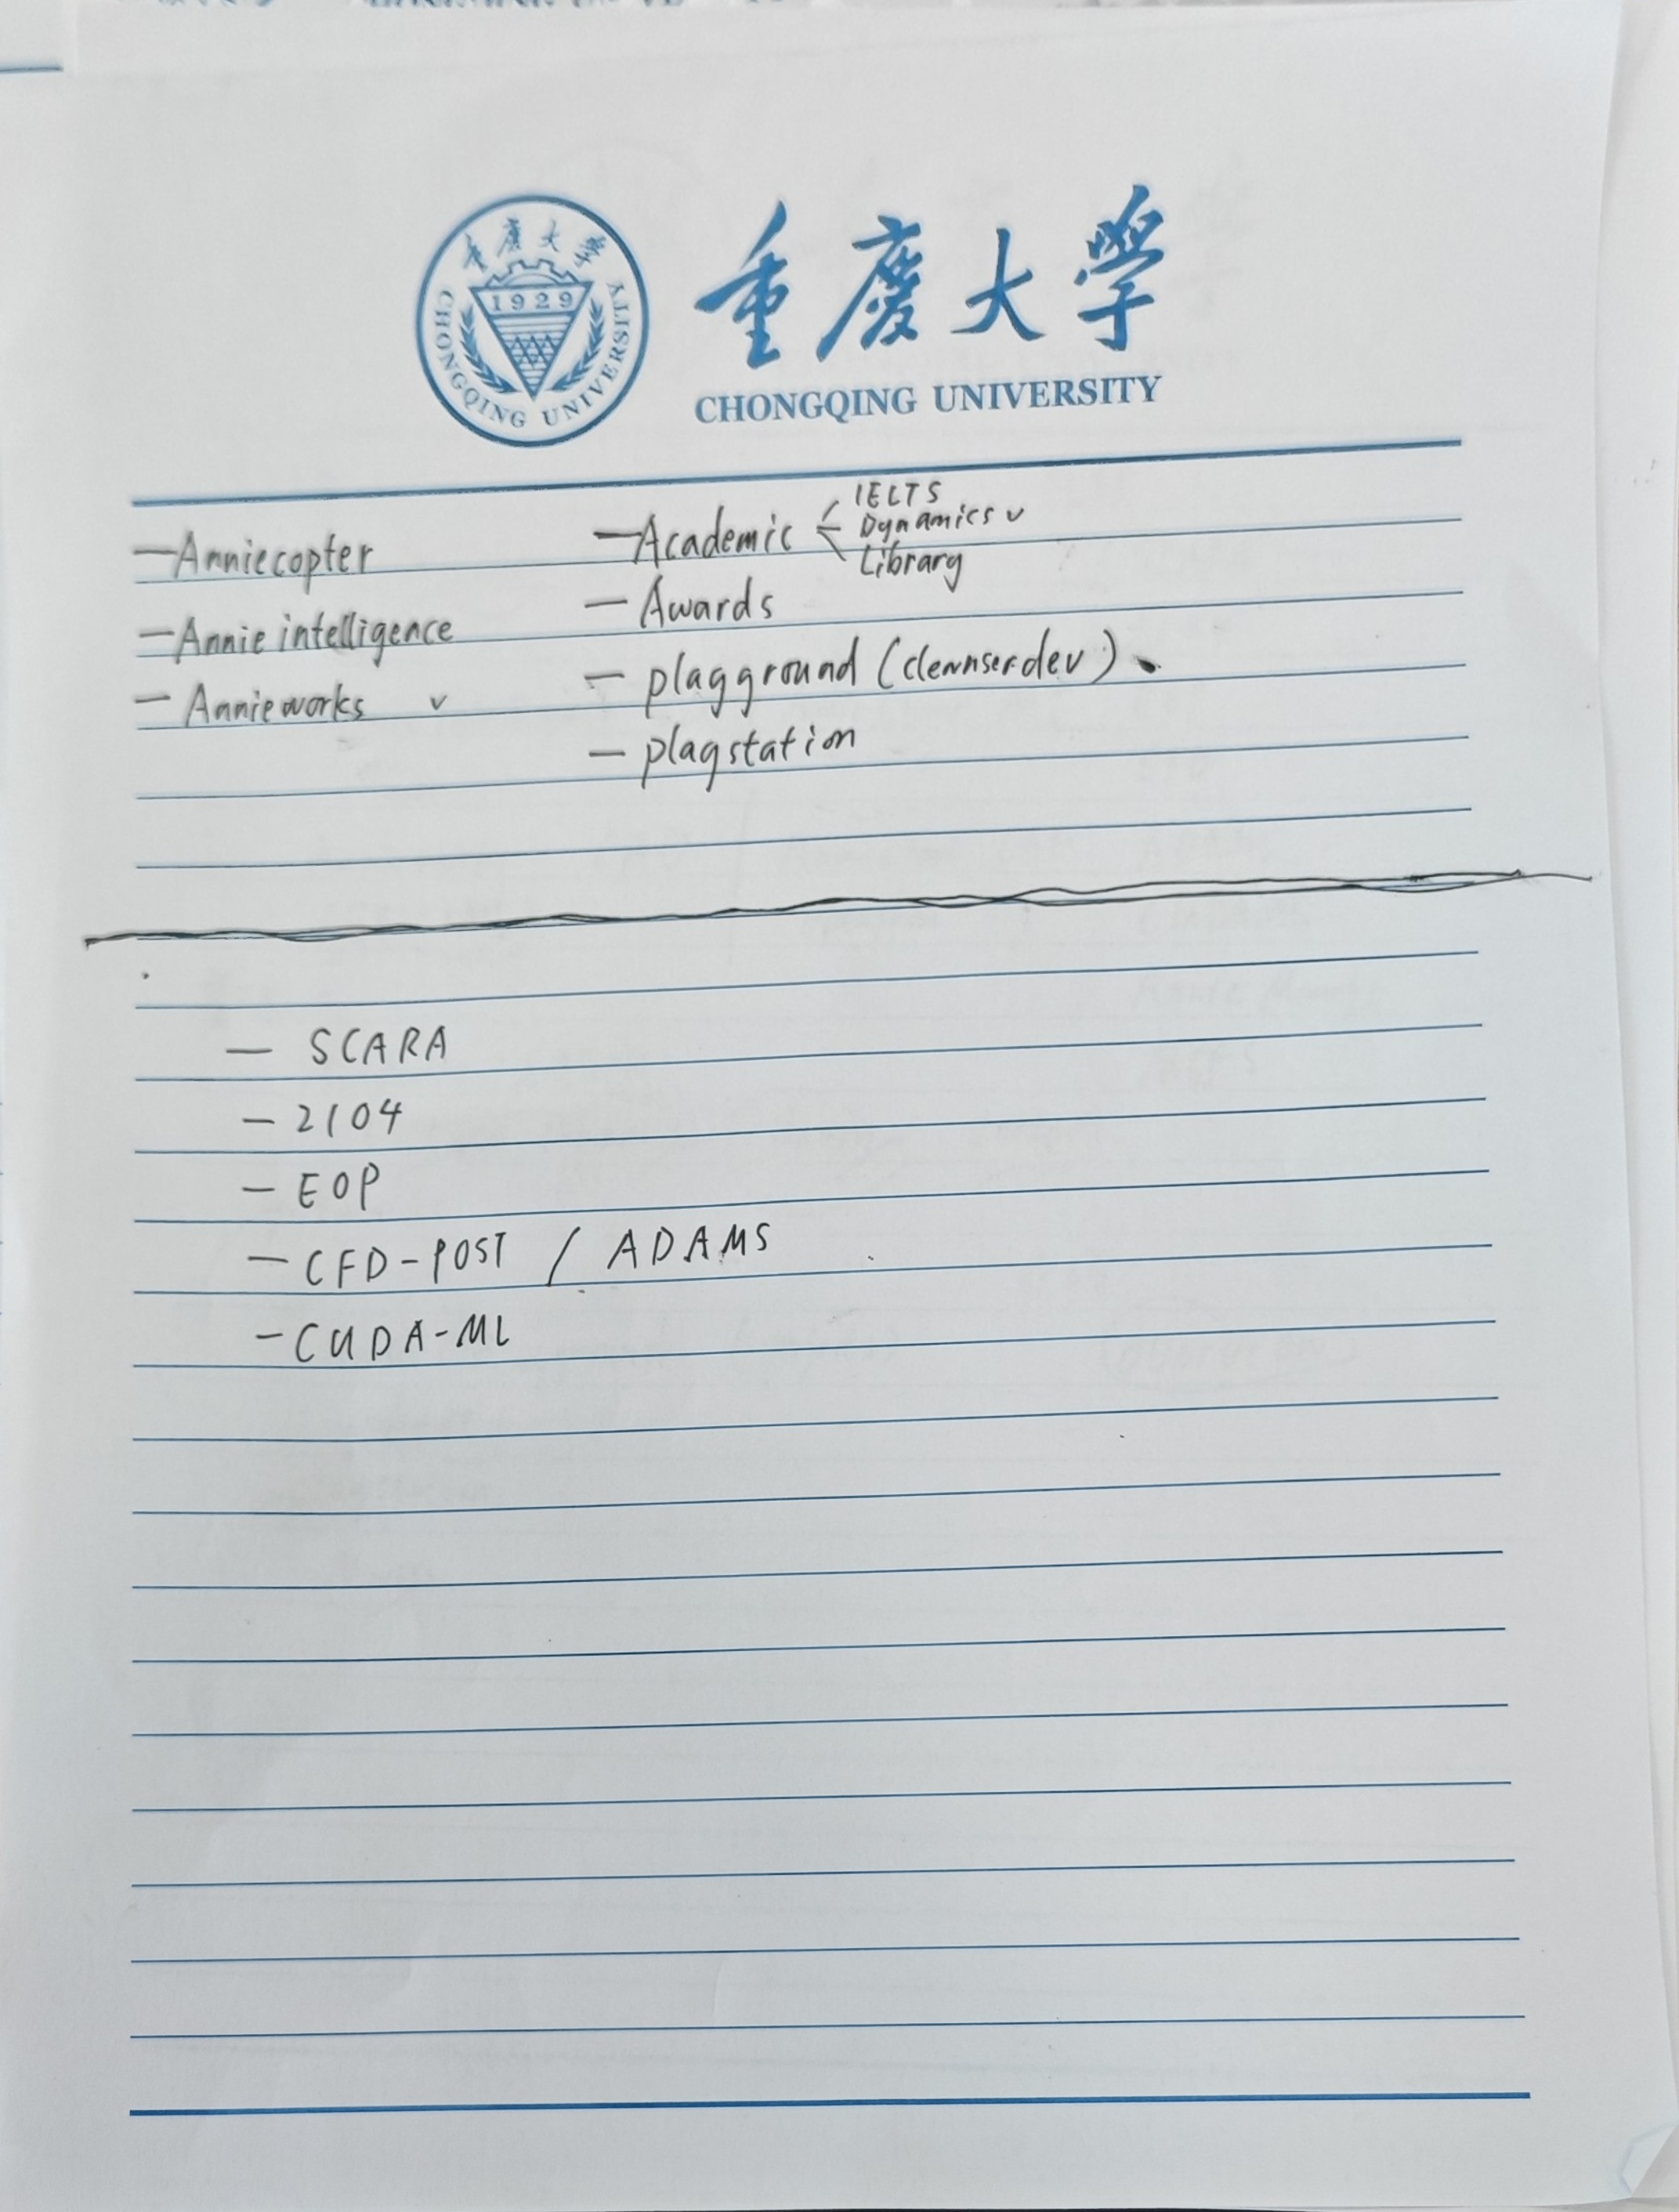 重慶大學
1929
CHONGQING UNIVERSITY
重慶大學
CHONGQING UNIVERSITY
—Anniecopter
—Annie intelligence
—Annieworks v
—Academic
IELTS
Dynamics v
Library
— Awards
— playground (clewnserdev)
— playstation
— SCARA
— 2104
— EOP
— CFD-POST / ADAMS
— CUDA-ML